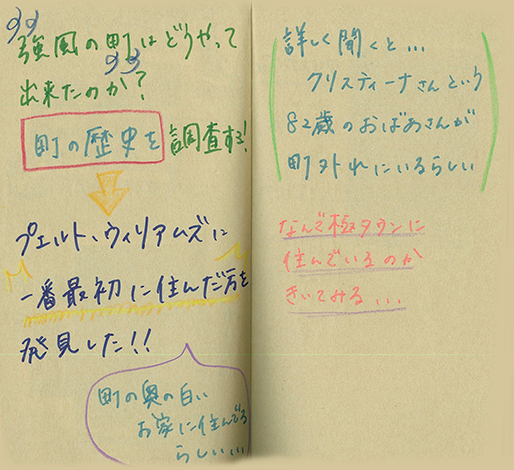 強風の町はどうやって
出来たのか?
町の歴史を調査する!
プエルト・ウィリアムズに
一番最初に住んだ方を
発見した!!
町の奥の白い
お家に住んでる
らしい…
詳しく聞くと…
クリスティーナさんという
82歳のおばあさんが
町外れにいるらしい
なんで極タウンに
住んでいるのか
きいてみる…